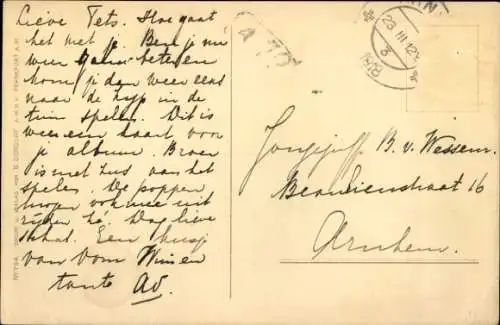 Lieve Tets. Hoe gaat
het met je. Ben je nu
weer beter en
kom je dan weer eens
naar de in de
tuin spelen. Dit is
weer een kaart voor
je album. Broer
is met Lus aan het
spelen. De poppen
mogen ook mee uit
rijden hè. Dag lieve
schat. Een kusje
van Oom Wim en
tante Ad.
23 III 12
3
1918
Jongejuff. B. v. Wessem.
Beaulieustraat 16
Arnhem.